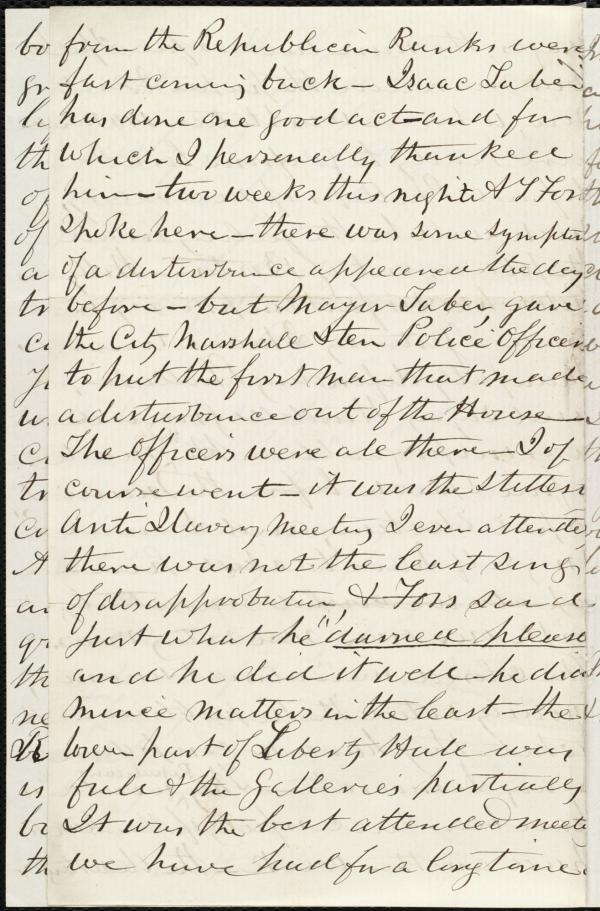 from the Republican Ranks were
fast coming back – Isaac Taber
has done one good act – and for
which I personally thanked
him – two weeks this night A T Foss
Spoke here – there was some symptom
of a disturbance appeared the day
before – but Mayor Taber, gave
the City Marshall & ten Police Officers
to put the first man that made
a disturbance out of the House –
The Officers were all there – I of
course went – it was the stillest
Anti Slavery Meeting I ever attende
there was not the least sing
of disapprobation, & Foss said
Just what he "darned please
and he did it well – he did
mince matters in the least – the
lower part of Liberty Hall was
full & the Galleries partially
It was the best attended meeti
we have had for a long time